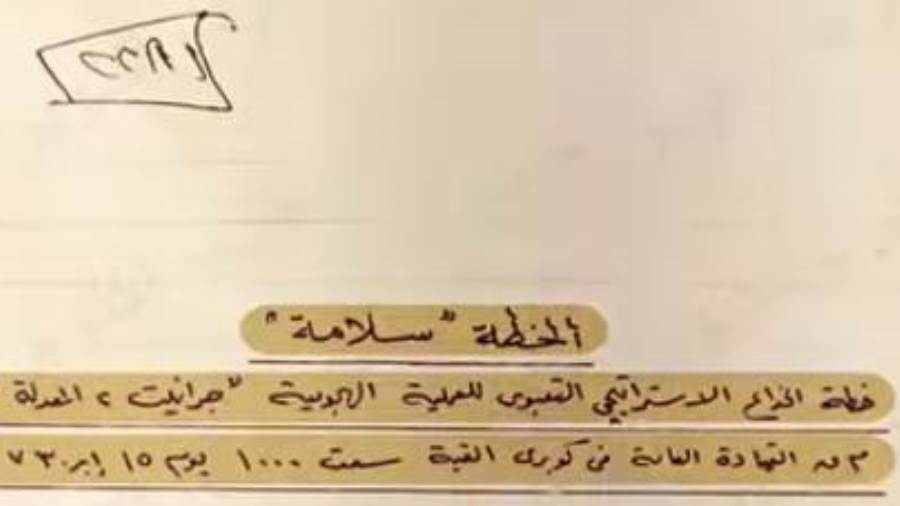 الخطة "سلامة"
خطة الخداع الاستراتيجي التعبوى للعملية الهجومية "جرانيت ٢ المعدلة
القيادة العامة فى كوبرى القبة سعت ١٠٠٠ يوم ١٥ إبريل ٧٣